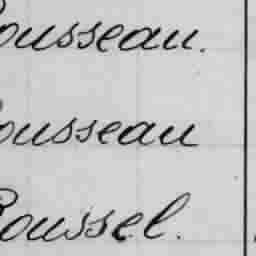 Rousseau.
Rousseau
Roussel.